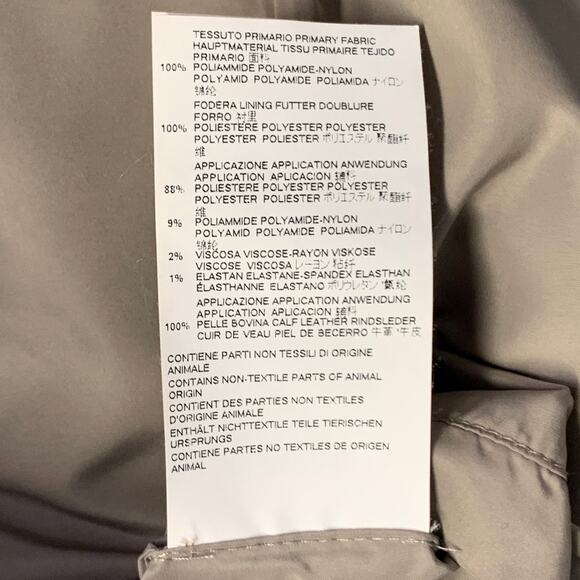 TESSUTO PRIMARIO PRIMARY FABRIC
HAUPTMATERIAL TISSU PRIMAIRE TEJIDO
PRIMARIO 面料
100% POLIAMMIDE POLYAMIDE-NYLON
POLYAMID POLYAMIDE POLIAMIDA ナイロン
锦纶
FODERA LINING FUTTER DOUBLURE
FORRO 衬里
100% POLIESTERE POLYESTER POLYESTER
POLYESTER POLIESTER ポリエステル 聚酯纤
维
APPLICAZIONE APPLICATION ANWENDUNG
APPLICATION APLICACION 辅料
88% POLIESTERE POLYESTER POLYESTER
POLYESTER POLIESTER ポリエステル 聚酯纤
维
9% POLIAMMIDE POLYAMIDE-NYLON
POLYAMID POLYAMIDE POLIAMIDA ナイロン
锦纶
2% VISCOSA VISCOSE-RAYON VISKOSE
VISCOSE VISCOSA レーヨン 粘纤
1% ELASTAN ELASTANE-SPANDEX ELASTHAN
ÉLASTHANNE ELASTANO ポリウレタン 氨纶
APPLICAZIONE APPLICATION ANWENDUNG
APPLICATION APLICACION 辅料
100% PELLE BOVINA CALF LEATHER RINDSLEDER
CUIR DE VEAU PIEL DE BECERRO 牛革 牛皮
CONTIENE PARTI NON TESSILI DI ORIGINE
ANIMALE
CONTAINS NON-TEXTILE PARTS OF ANIMAL
ORIGIN
CONTIENT DES PARTIES NON TEXTILES
D'ORIGINE ANIMALE
ENTHÄLT NICHTTEXTILE TEILE TIERISCHEN
URSPRUNGS
CONTIENE PARTES NO TEXTILES DE ORIGEN
ANIMAL